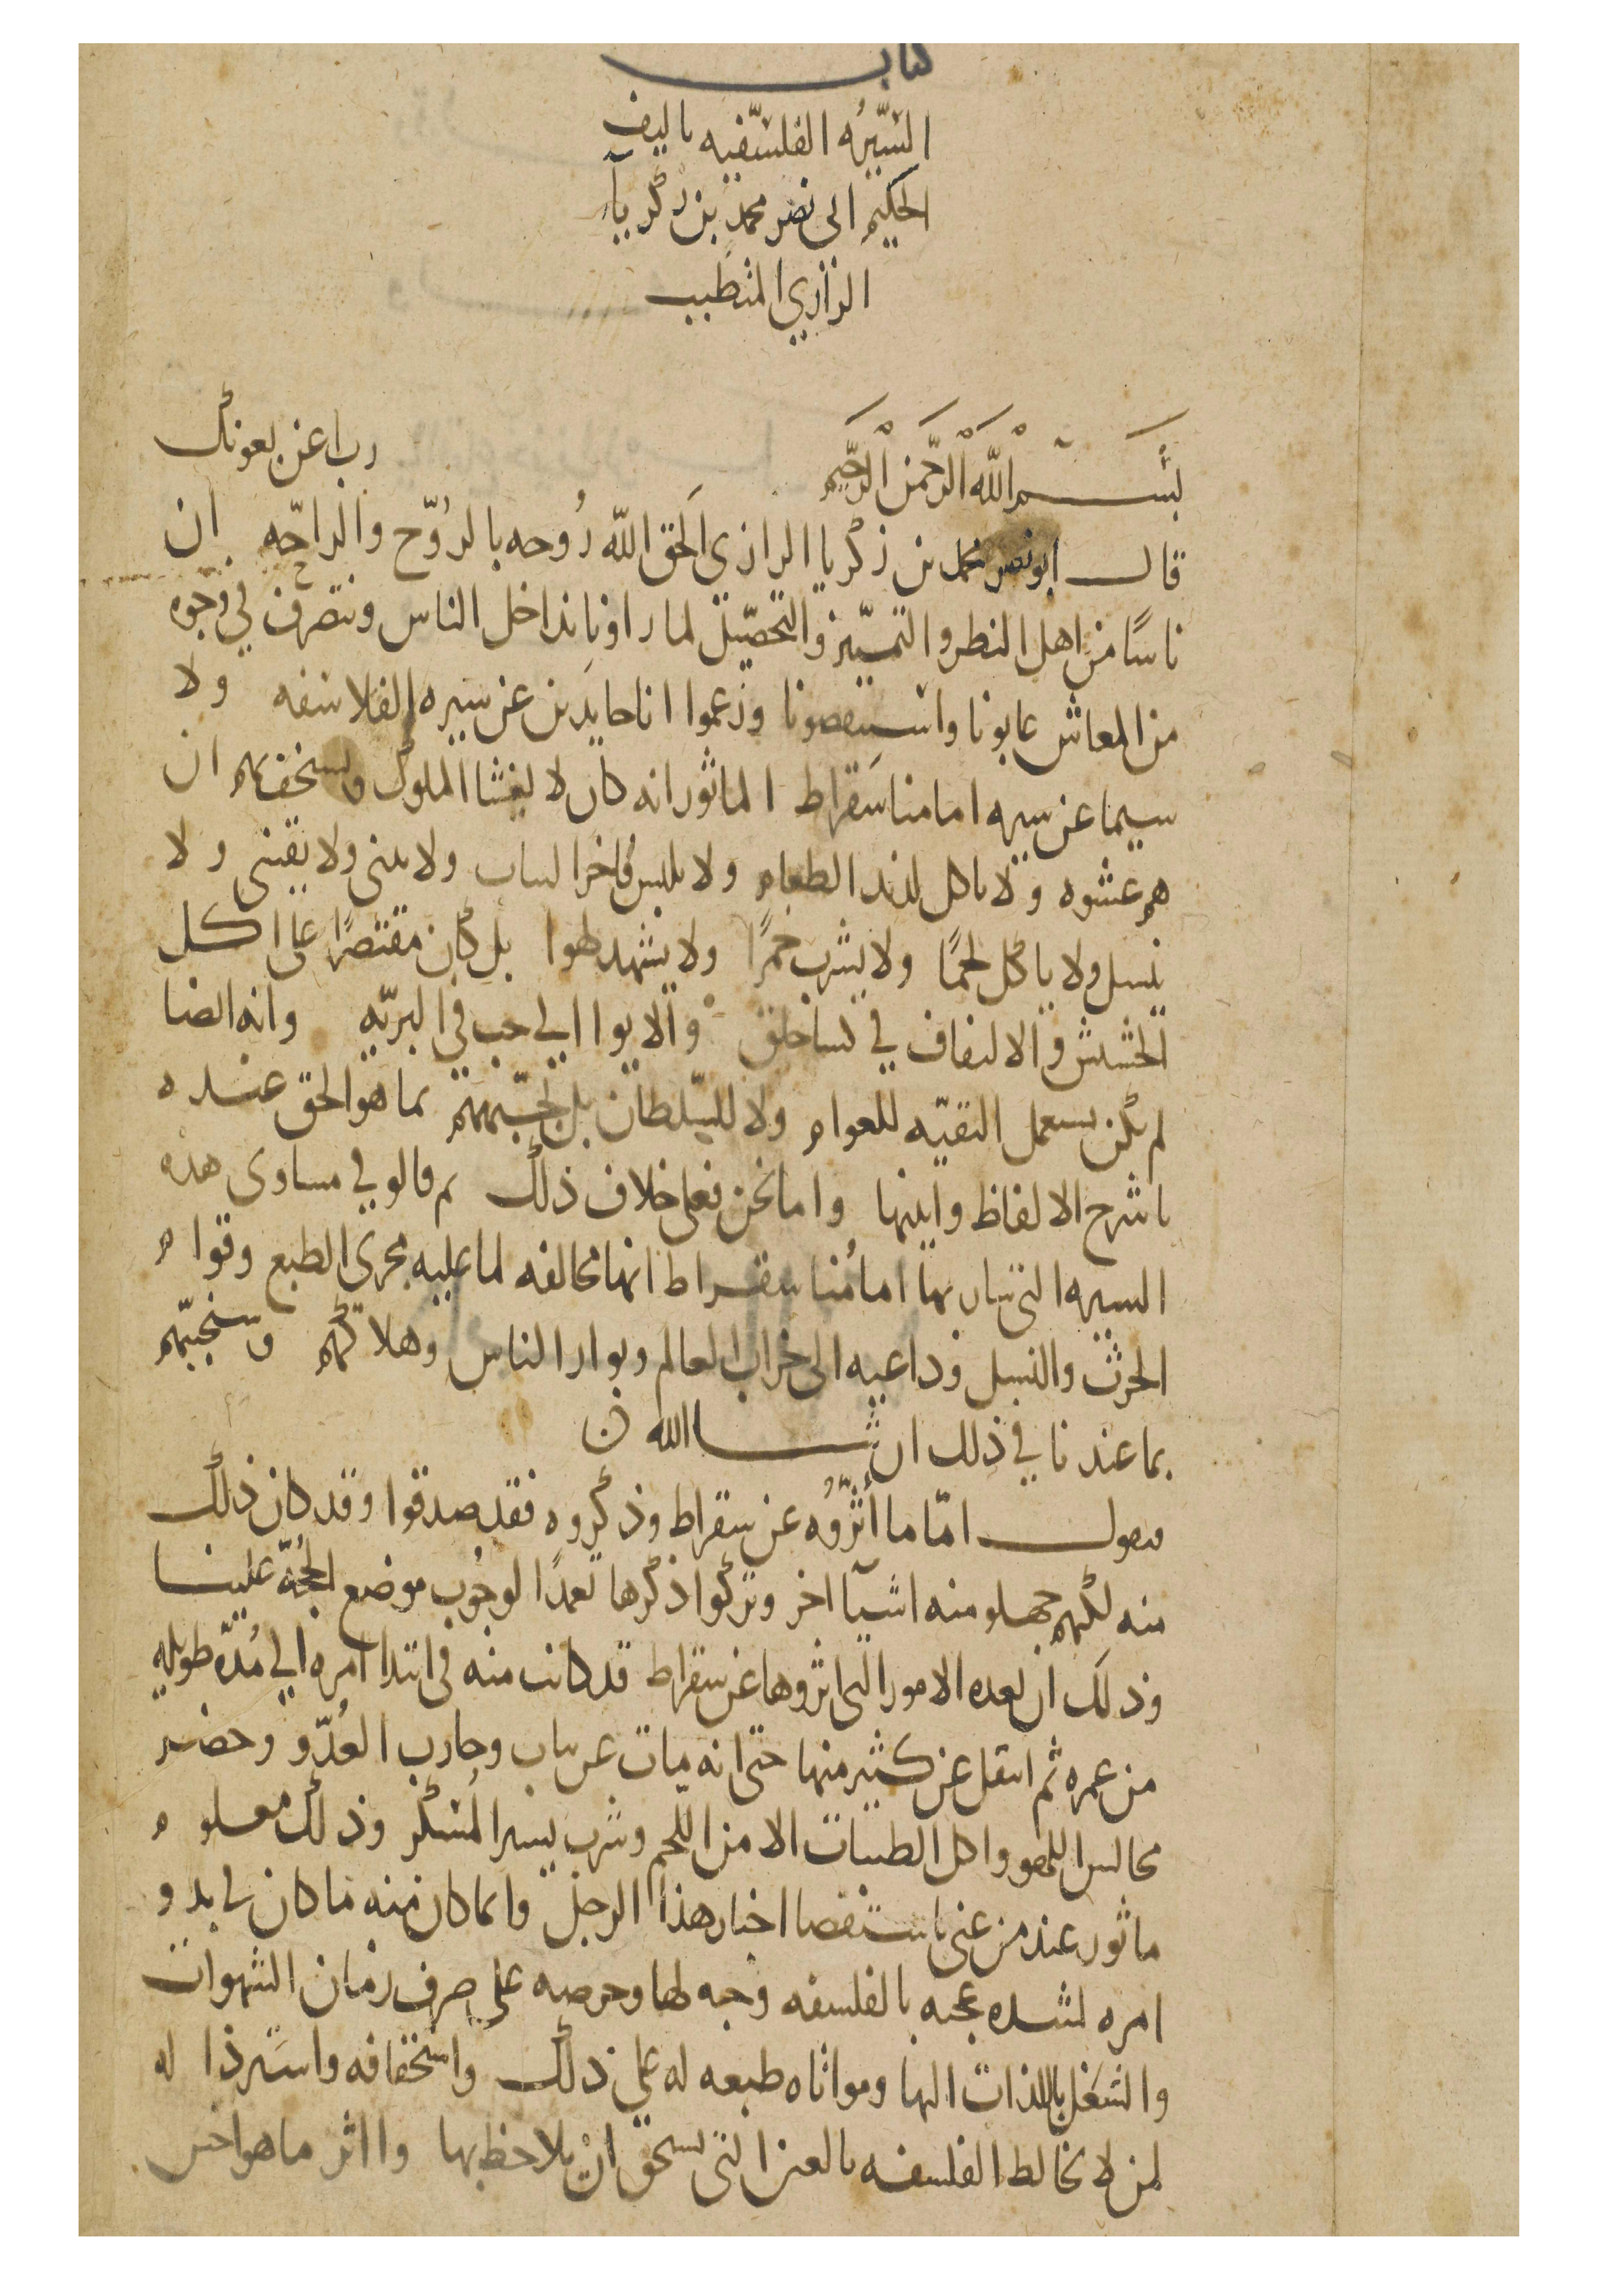 كتاب
السيره الفلسفيه تاليف
الحكيم ابى نصر محمد بن زكريآ
الرازي المتطبب
بسم الله الرحمن الرحيم رب اعن بعونك
قال ابو نصر محمد بن زكريا الرازي الحق الله روحه بالروح والراحه ان
ناسًا من اهل النظر والتمييز والتحصيل لما راونا نداخل الناس ونتصرف في وجوه
من المعاش عابونا واستنقصونا وزعموا انا حايدين عن سيره الفلاسفه ولا
سيما عن سيره امامنا سقراط الماثور انه كان لا يغشا الملوك ويستخف بهم ان
هم غشوه ولا ياكل لذيذ الطعام ولا يلبس فاخر الثياب ولا يبنى ولا يقتنى ولا
ينسل ولا ياكل لحمًا ولا يشرب خمرًا ولا يشهد لهوا بل كان مقتصرًا على اكل
الحشيش والالتفاف في كسا خلق والايوا الى حب في البريّه وانه ايضا
لم يكن يستعمل التقيّه للعوام ولا للسلطان بل يجبههم بما هو الحق عنده
باشرح الالفاظ وابينها واما نحن فعلى خلاف ذلك ثم قالو في مساوى هذه
السيره التى سار بها امامُنا سقراط انها مخالفه لما عليه مجرى الطبع وقوام
الحرث والنسل وداعيه الى خراب العالم وبوار الناس وهلاكهم وسنجيبهم
بما عندنا في ذلك ان شا الله
فنقول امّا ما أثروُه عن سقراط وذكروه فقد صدقوا وقد كان ذلك
منه لكنهم جهلو منه اشيآ اخر وتركوا ذكرها تعمدًا لوجوب موضع الحجّة علينا
وذلك ان هذه الامور التى اثروها عن سقراط قد كانت منه في ابتدا امره الي مُدّه طويله
من عمره ثم انتقل عن كثير منها حتى انه مات عن بنات وحارب العدّو وحضر
مجالس اللهو واكل الطيبات الا من اللحم وشرب يسير المُسكر وذلك معلوم
ماثور عند من عنى باستقصا اخبار هذا الرجل وانما كان منه ما كان في بدو
امره لشده عجبه بالفلسفه وحبه لها وحرصه على صرف زمان الشهوات
والشغل باللذات اليها ومواتاه طبعه له على ذلك واستخفافه واسترذاله
لمن لا يخالط الفلسفه بالعين التى تستحق انْ يلاحظ بها وااثر ما هو اخس